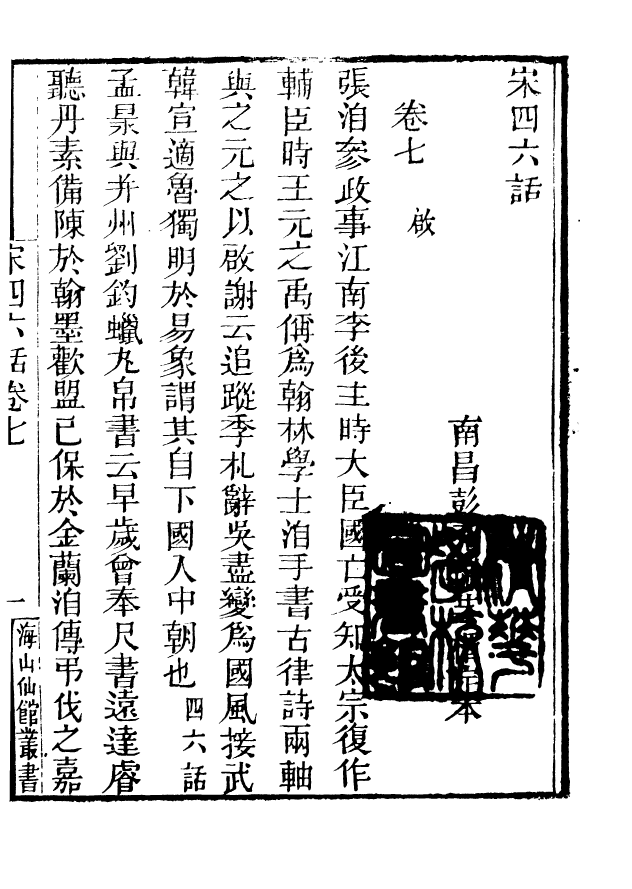 宋四六話
南昌彭
本
卷七　啟
張洎參政事江南李後主時大臣國亡受知太宗復作
輔臣時王元之禹偁爲翰林學士洎手書古律詩兩軸
與之元之以啟謝云追蹤季札辭吳盡變爲國風接武
韓宣適魯獨明於易象謂其自下國入中朝也 四六話
孟㫤與并州劉鈞蠟丸帛書云早歲曾奉尺書遠達睿
聽丹素備陳於翰墨歡盟已保於金蘭洎傳弔伐之嘉
宋四六話卷七
一
海山仙館叢書